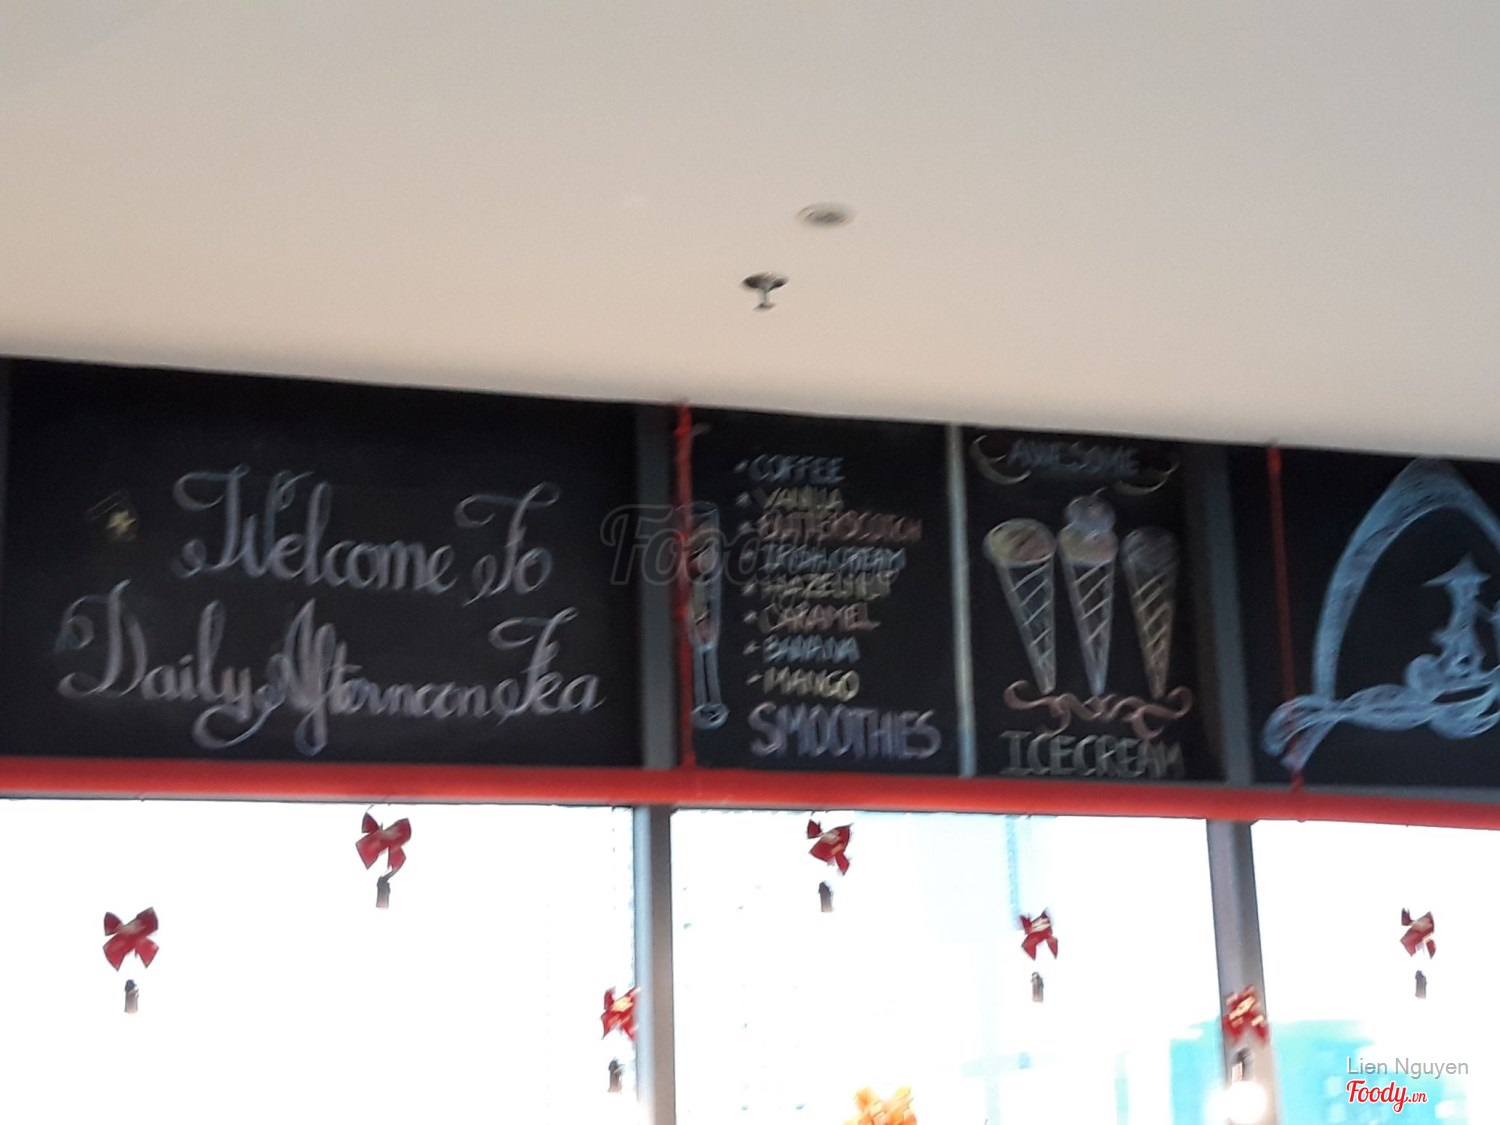 Welcome To
Daily Afternoon Tea
COFFEE
VANILLA
BUTTERSCOTCH
IRISH CREAM
HAZELNUT
CARAMEL
BANANA
MANGO
SMOOTHIES
AWESOME
ICECREAM
Foody
Lien Nguyen
Foody.vn